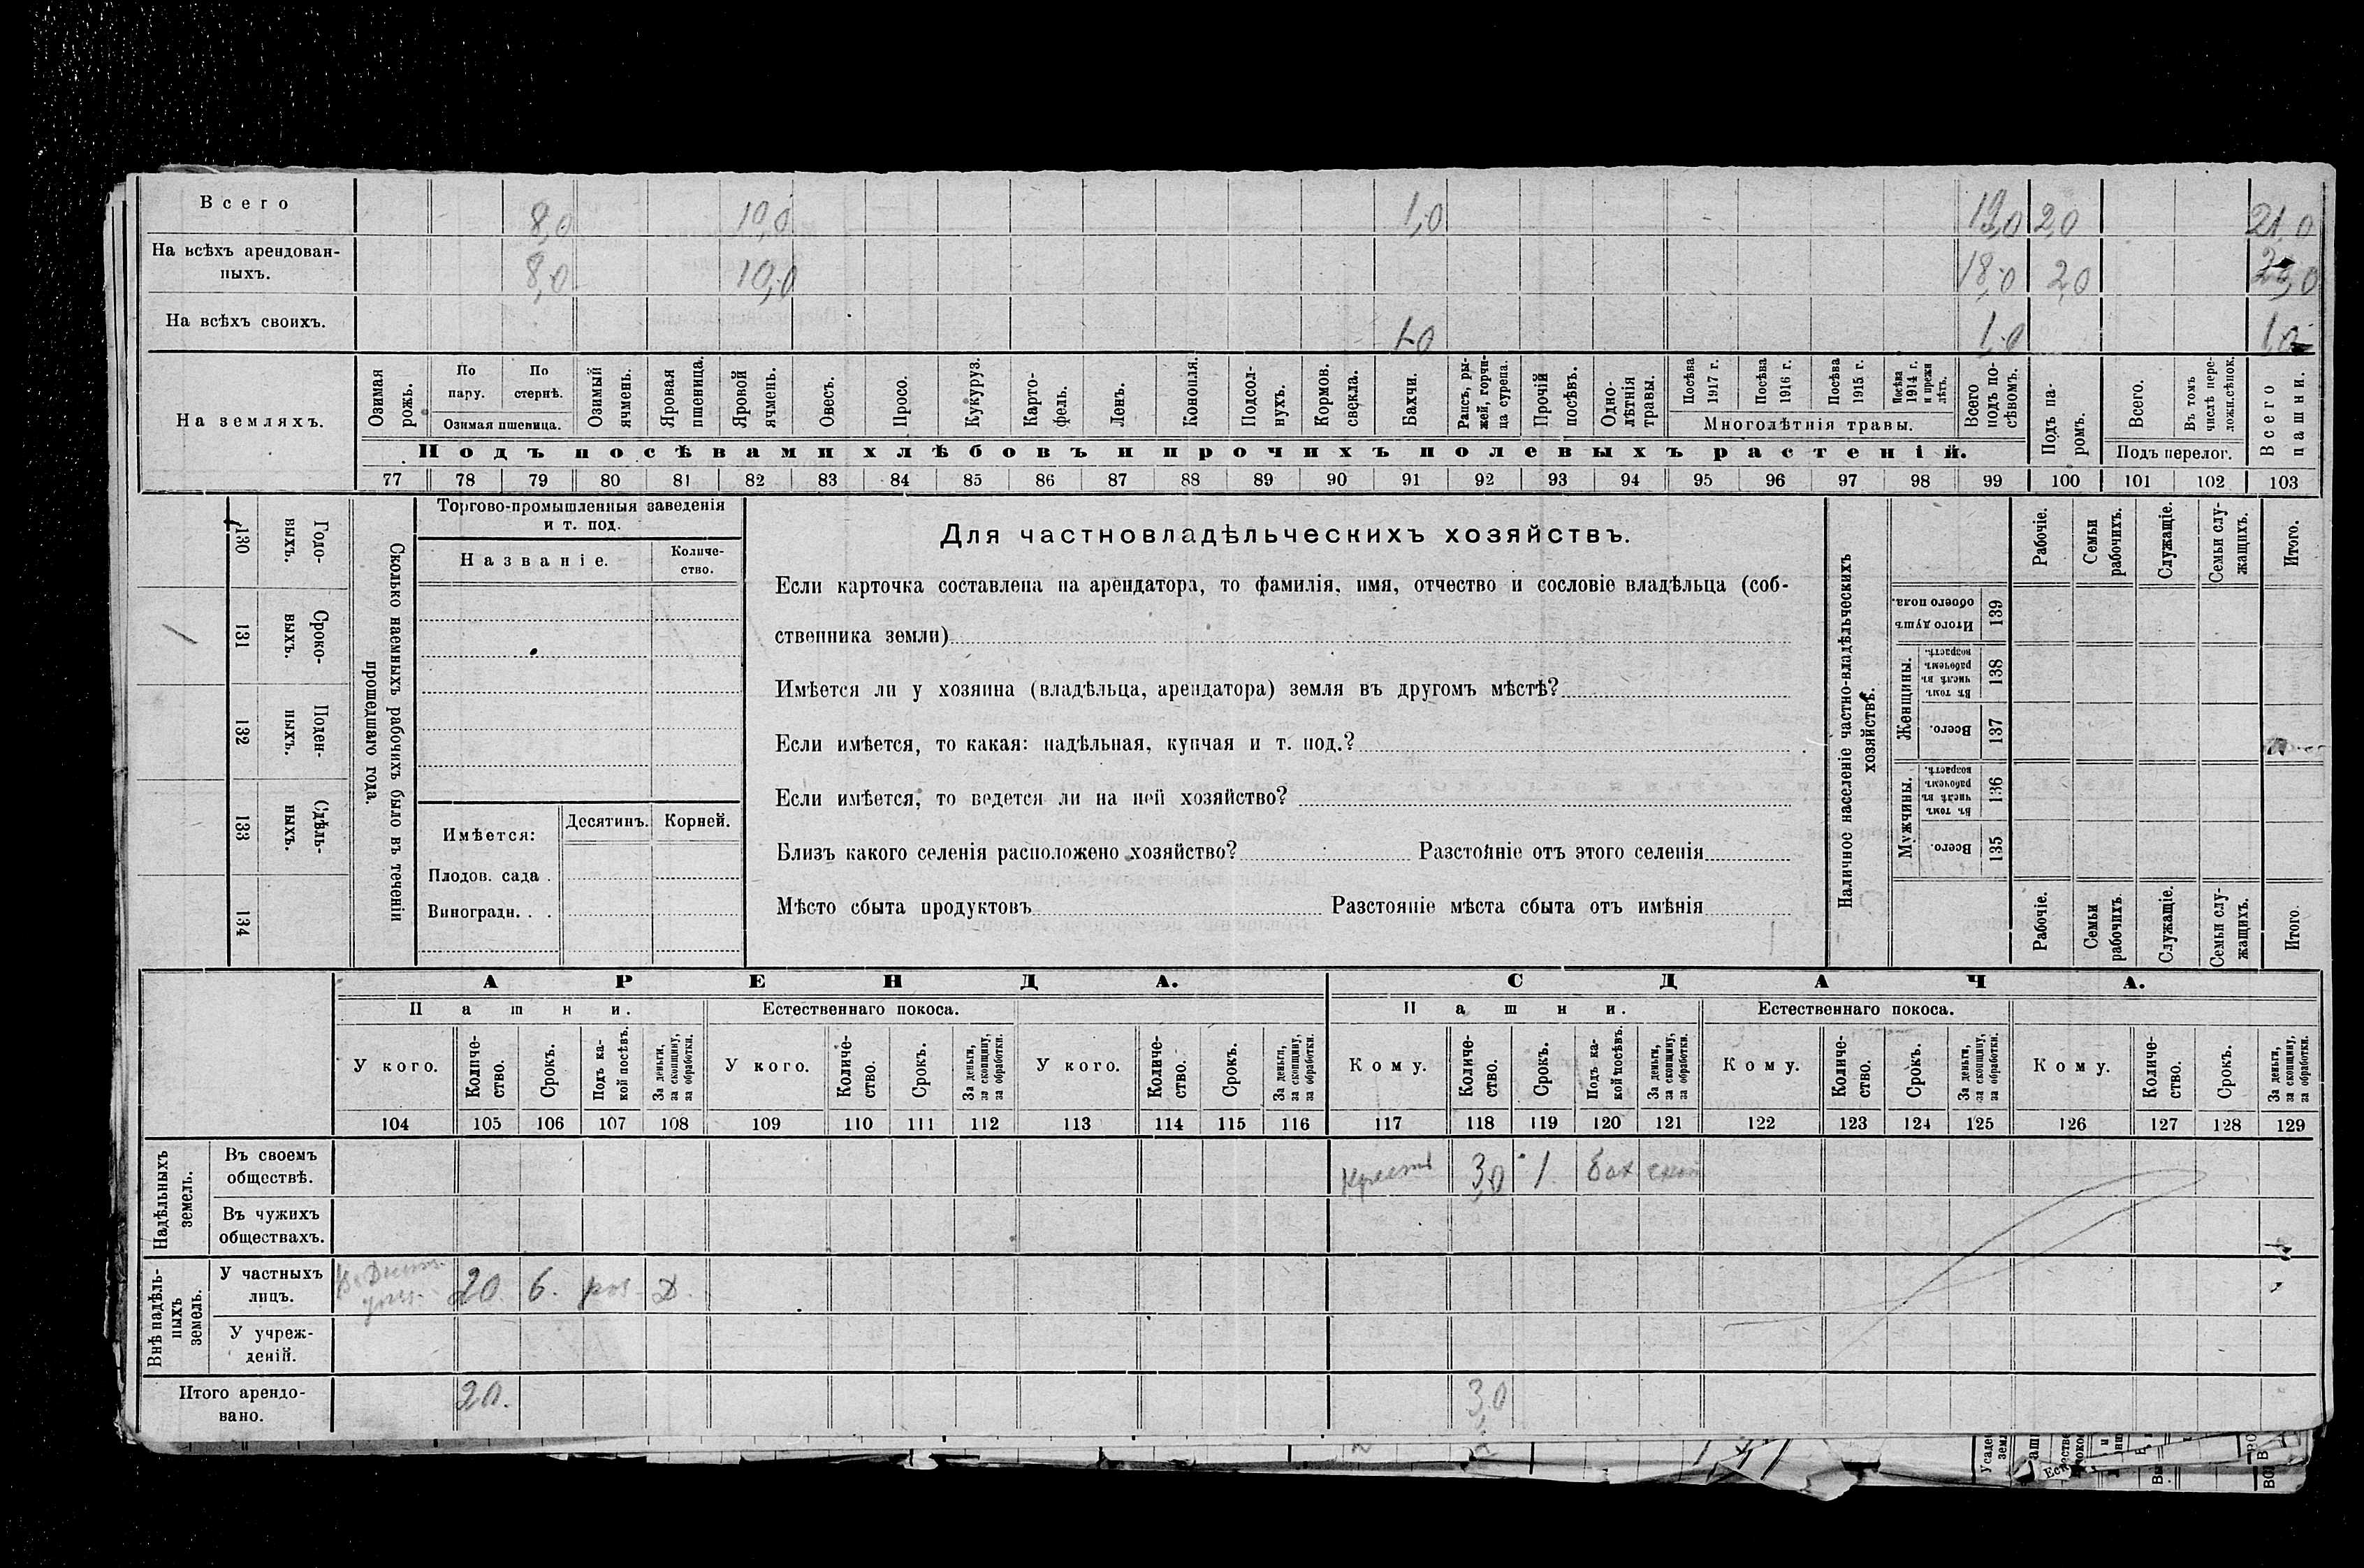 Всего 8,0 10,0 1,0 19,0 2,0 21,0
На всѣхъ арендован-
ныхъ. 8,0 10,0 18,0 2,0
На всѣхъ своихъ. 1,0 1,0 1,0
На земляхъ.
Озимая рожь.
По пару.
По стернѣ.
Озимая пшеница.
Озимый ячмень.
Яровая пшеница.
Яровой ячмень.
Овесъ.
Просо.
Кукуруз.
Карто-
фель.
Ленъ.
Конопля.
Подсол-
нухъ.
Кормов.
свекла.
Бахчи.
Рапсъ, ры-
жей, горчи-
ца сурепа.
Прочій
посѣвъ.
Одно-
лѣтнія
травы.
Посѣва
1917 г.
Посѣва
1916 г.
Посѣва
1915 г.
Посѣва
1914 г.
и прежн
лѣтъ.
Многолѣтнія травы.
Всего
подъ по-
сѣвомъ.
Подъ па-
ромъ.
Всего.
Въ томъ
числѣ пере-
ложн.сѣнок.
Подъ перелог.
Всего
пашни.
Подъ посѣвами хлѣбовъ и прочихъ полевыхъ растеній.
77 78 79 80 81 82 83 84 85 86 87 88 89 90 91 92 93 94 95 96 97 98 99 100 101 102 103
Сколько наемныхъ рабочихъ было въ теченіи
прошедшаго года.
Годо-
выхъ.
130
Сроко-
выхъ.
131
Поден-
ныхъ.
132
Сдѣль-
ныхъ.
133
134
Торгово-промышленныя заведенія
и т. под.
Названіе.
Количе-
ство.
Имѣется:
Десятинъ. Корней.
Плодов. сада .
Виноградн. . .
Для частновладѣльческихъ хозяйствъ.
Если карточка составлена на арендатора, то фамилія, имя, отчество и сословіе владѣльца (соб-
ственника земли)
Имѣется ли у хозяина (владѣльца, арендатора) земля въ другомъ мѣстѣ?
Если имѣется, то какая: надѣльная, купчая и т. под.?
Если имѣется, то ведется ли на ней хозяйство?
Близъ какого селенія расположено хозяйство? Разстояніе отъ этого селенія
Мѣсто сбыта продуктовъ Разстояніе мѣста сбыта отъ имѣнія
Наличное населеніе частно-владѣльческихъ
хозяйствъ.
Рабочіе.
Семьи
рабочихъ.
Служащіе.
Семьи слу-
жащихъ.
Итого.
Итого душъ
обоего пола.
139
Женщины.
Въ томъ
числѣ въ
рабочемъ
возрастѣ.
138
Всего.
137
Мужчины.
Въ томъ
числѣ въ
рабочемъ
возрастѣ.
136
Всего.
135
Рабочіе.
Семьи
рабочихъ.
Служащіе.
Семьи слу-
жащихъ.
Итого.
АРЕНДА. СДАЧА.
Пашни. Естественнаго покоса. Пашни. Естественнаго покоса.
У кого.
Количе-
ство.
Срокъ.
Подъ ка-
кой посѣвъ.
За деньги,
за скопщину,
за обработки.
У кого.
Количе-
ство.
Срокъ.
За деньги,
за скопщину,
за обработки.
У кого.
Количе-
ство.
Срокъ.
За деньги,
за скопщину,
за обработки.
Кому.
Количе-
ство.
Срокъ.
Подъ ка-
кой посѣвъ.
За деньги,
за скопщину,
за обработки.
Кому.
Количе-
ство.
Срокъ.
За деньги,
за скопщину,
за обработки.
Кому.
Количе-
ство.
Срокъ.
За деньги,
за скопщину,
за обработки.
104 105 106 107 108 109 110 111 112 113 114 115 116 117 118 119 120 121 122 123 124 125 126 127 128 129
Надѣльныхъ
земель.
Въ своемъ
обществѣ. Крест 3,0 1 бах скоп
Въ чужихъ
обществахъ.
Внѣ надѣль-
ныхъ
земель.
У частныхъ
лицъ. 20. 6. Д.
У учреж-
деній.
Итого арендо-
вано. 20. 3,0